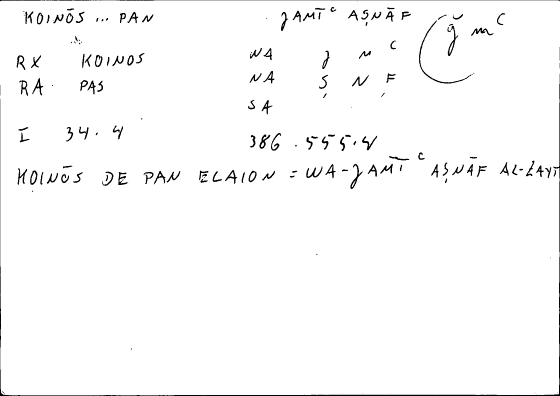 KOINŌS ... PAN ǦAMĪᶜ AṢNĀF ǧ mᶜ
RX KOINOS NA ǧ M C
RA PAS NA Ṣ N F
SA
I 34.4 386.555.4
KOINŌS DE PAN ELAION = WA-ǦAMĪᶜ AṢNĀF AL-ZAYT